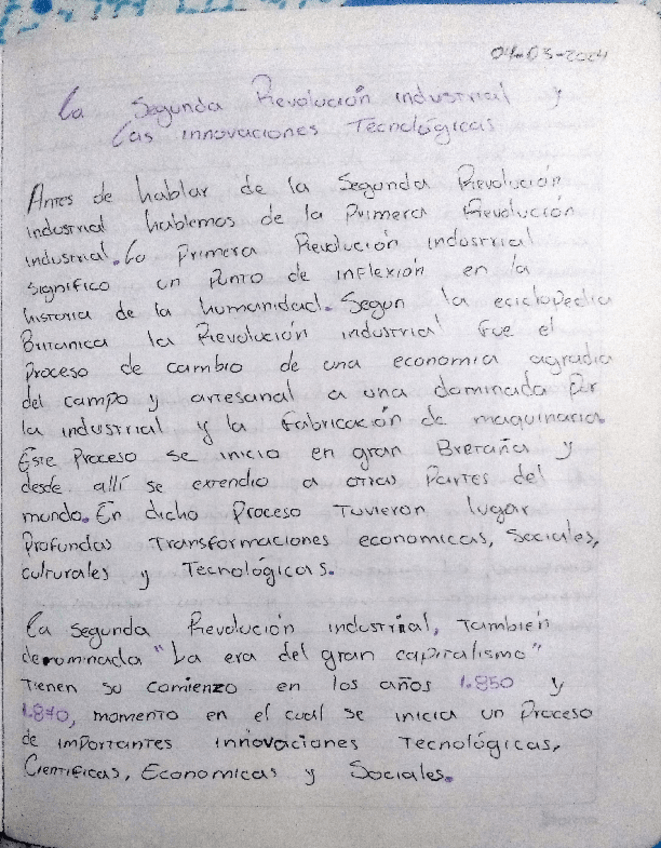 04-03-2024
La Segunda Revolución industrial y
las innovaciones Tecnológicas
Antes de hablar de la Segunda Revolución
industrial hablemos de la Primera Revolución
industrial. La Primera Revolución industrial
significo un Punto de inflexión en la
historia de la humanidad. Segun la eciclopedia
Britanica la Revolución industrial fue el
Proceso de cambio de una economia agradia
del campo y artesanal a una dominada Por
la industrial y la fabricación de maquinaria.
Este Proceso se inicio en gran Bretaña y
desde allí se extendio a otras Partes del
mundo. En dicho Proceso Tuvieron lugar
Profundas Transformaciones economicas, Sociales,
culturales y Tecnológicas.
La segunda Revolución industrial, También
denominada "La era del gran capitalismo"
Tienen su comienzo en los años 1.850 y
1.870, momento en el cual se inicia un Proceso
de importantes innovaciones Tecnológicas,
Cientificas, Economicas y Sociales.